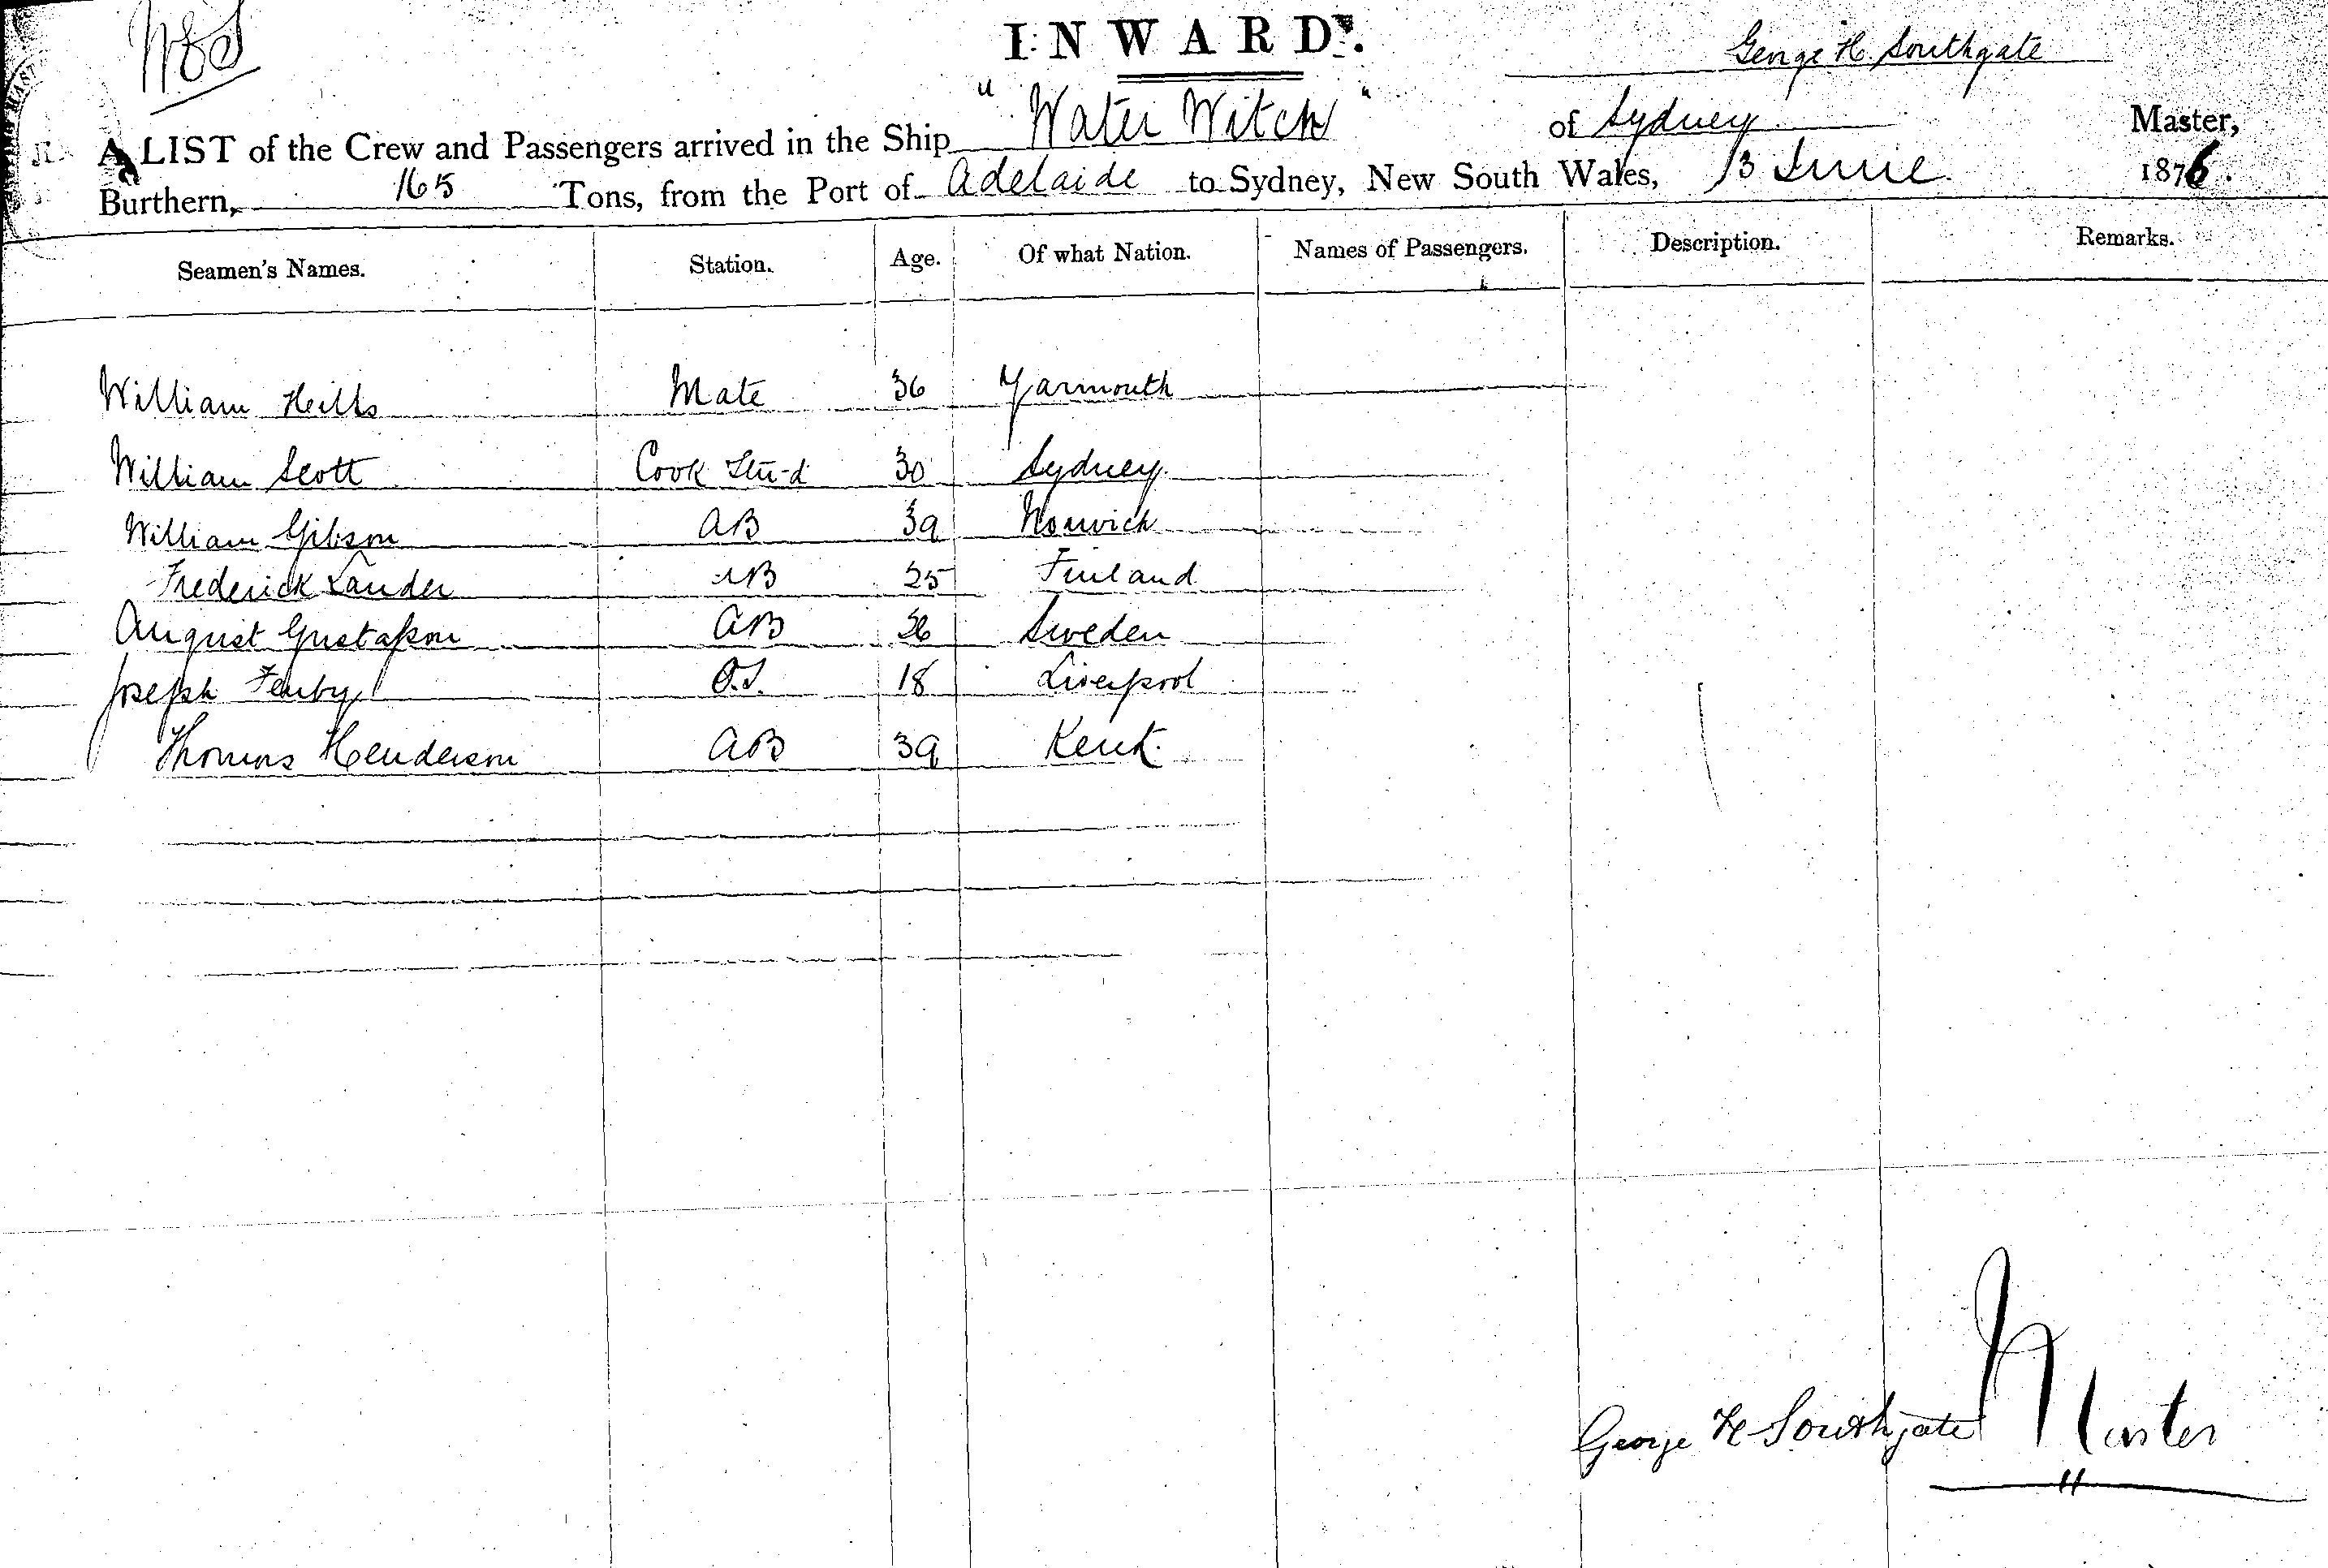 W&S
INWARD.
George H. Southgate
A LIST of the Crew and Passengers arrived in the Ship "Water Witch" of Sydney Master,
Burthern, 165 Tons, from the Port of Adelaide to Sydney, New South Wales, 13 June 1876.
Seamen's Names. Station. Age. Of what Nation. Names of Passengers. Description. Remarks.
William Hills Mate 36 Yarmouth
William Scott Cook Stu-d 30 Sydney
William Gibson AB 39 Norwich
Frederick Lander AB 25 Finland
August Gustafson AB 26 Sweden
Joseph Fenby O.S. 18 Liverpool
Thomas Henderson AB 39 Kent.
George H Southgate Master